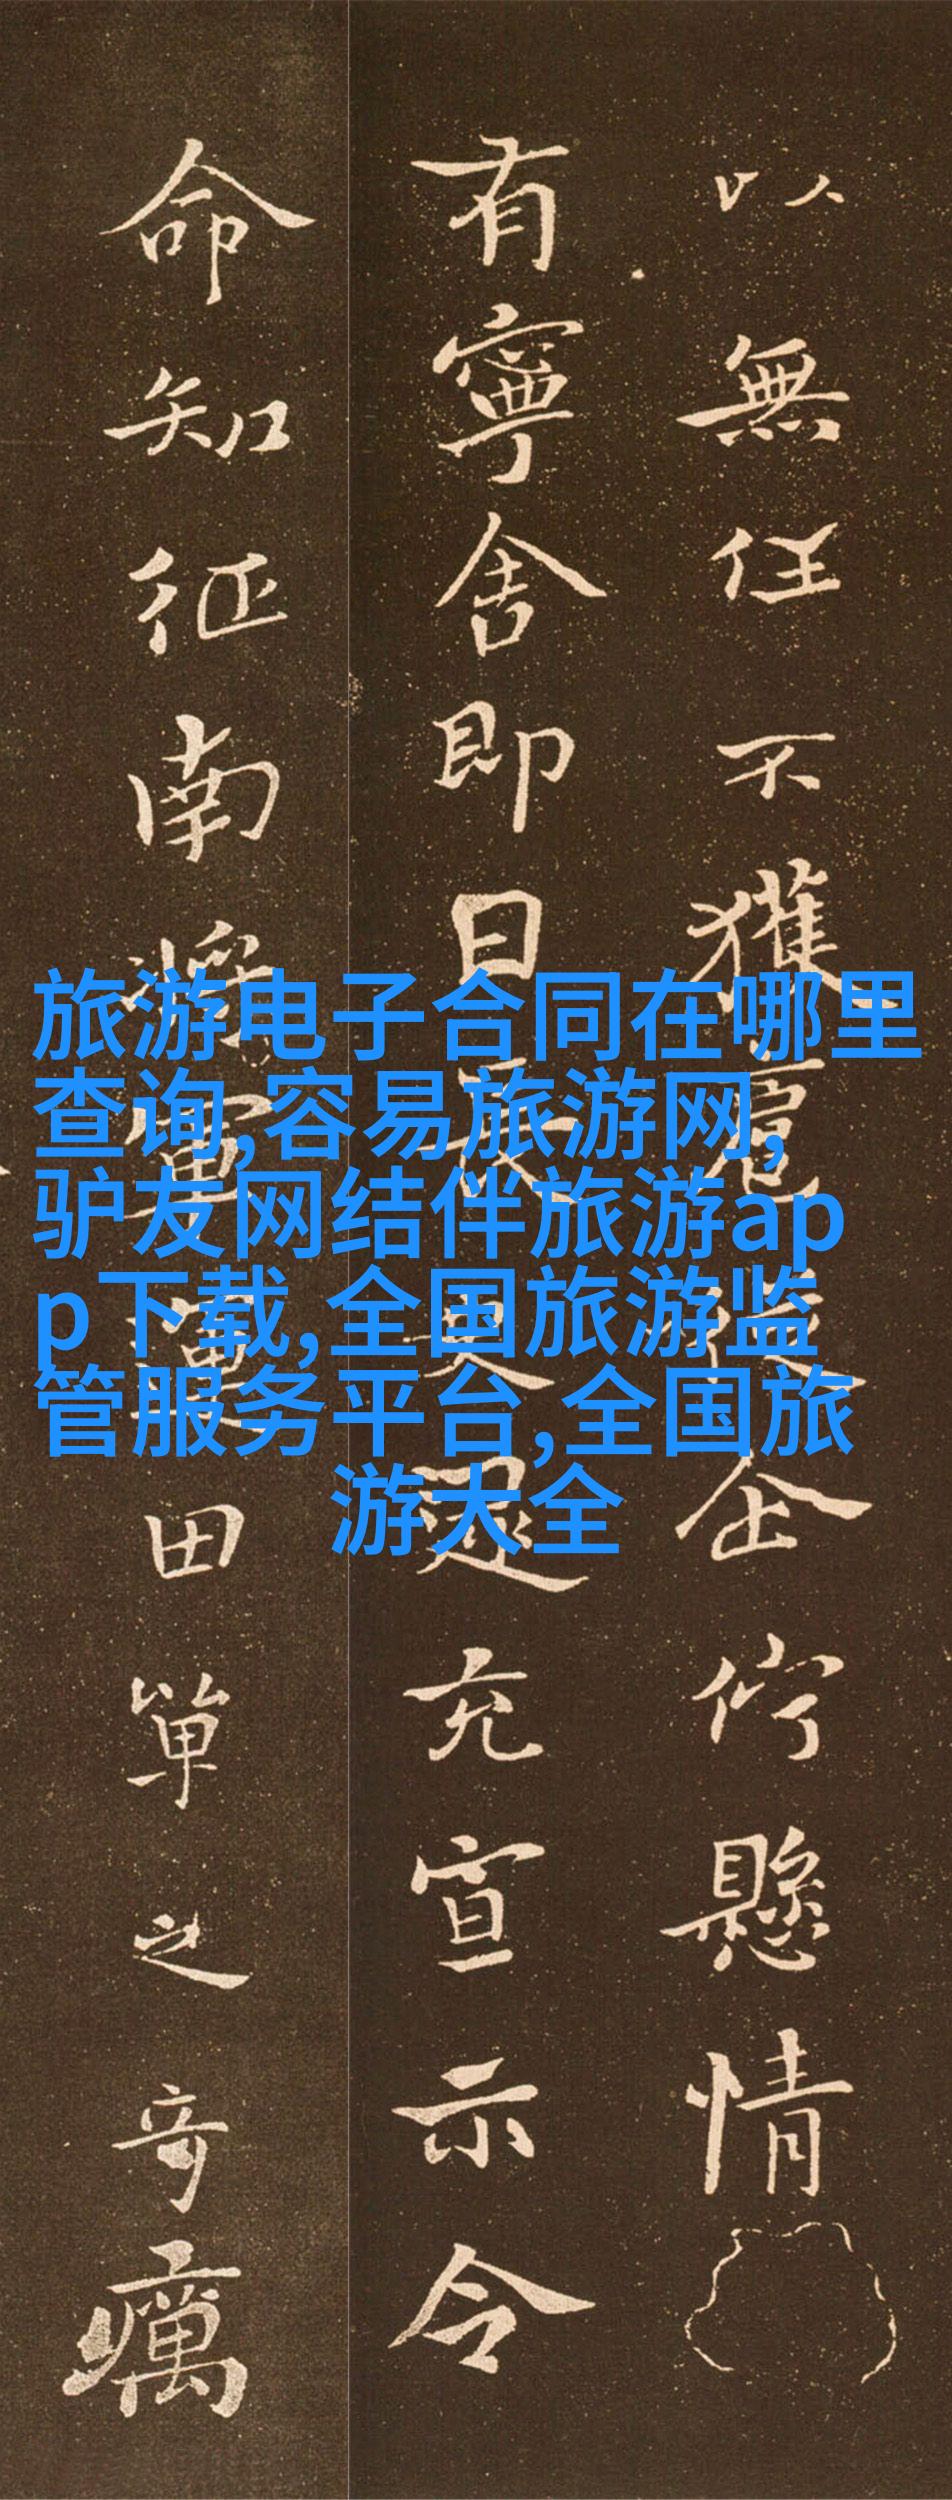 以無任不獲扈從企佇懸情
有寧舍即日長史逯充宣示令
命知征南將軍運田單之奇癘
旅游电子合同在哪里
查询,容易旅游网,
驴友网结伴旅游ap
p下载,全国旅游监
管服务平台,全国旅
游大全